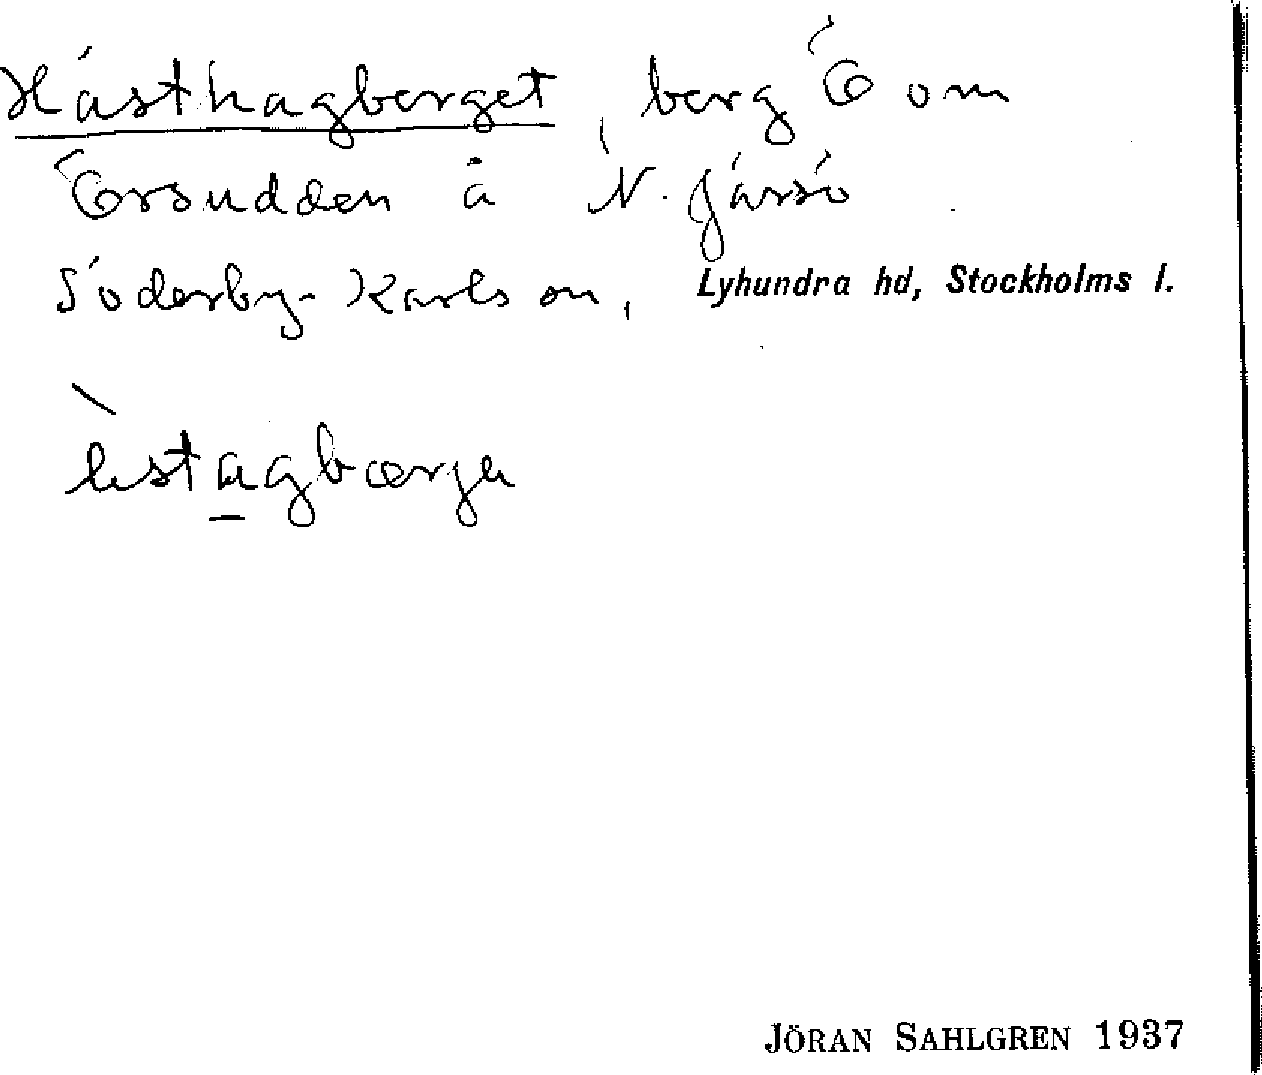 Hästhagberget, berg Ö om
Örsudden å N. Järsö
Söderby-Karlson, Lyhundra hd, Stockholms l.
èstagbærjə
JÖRAN SAHLGREN 1937